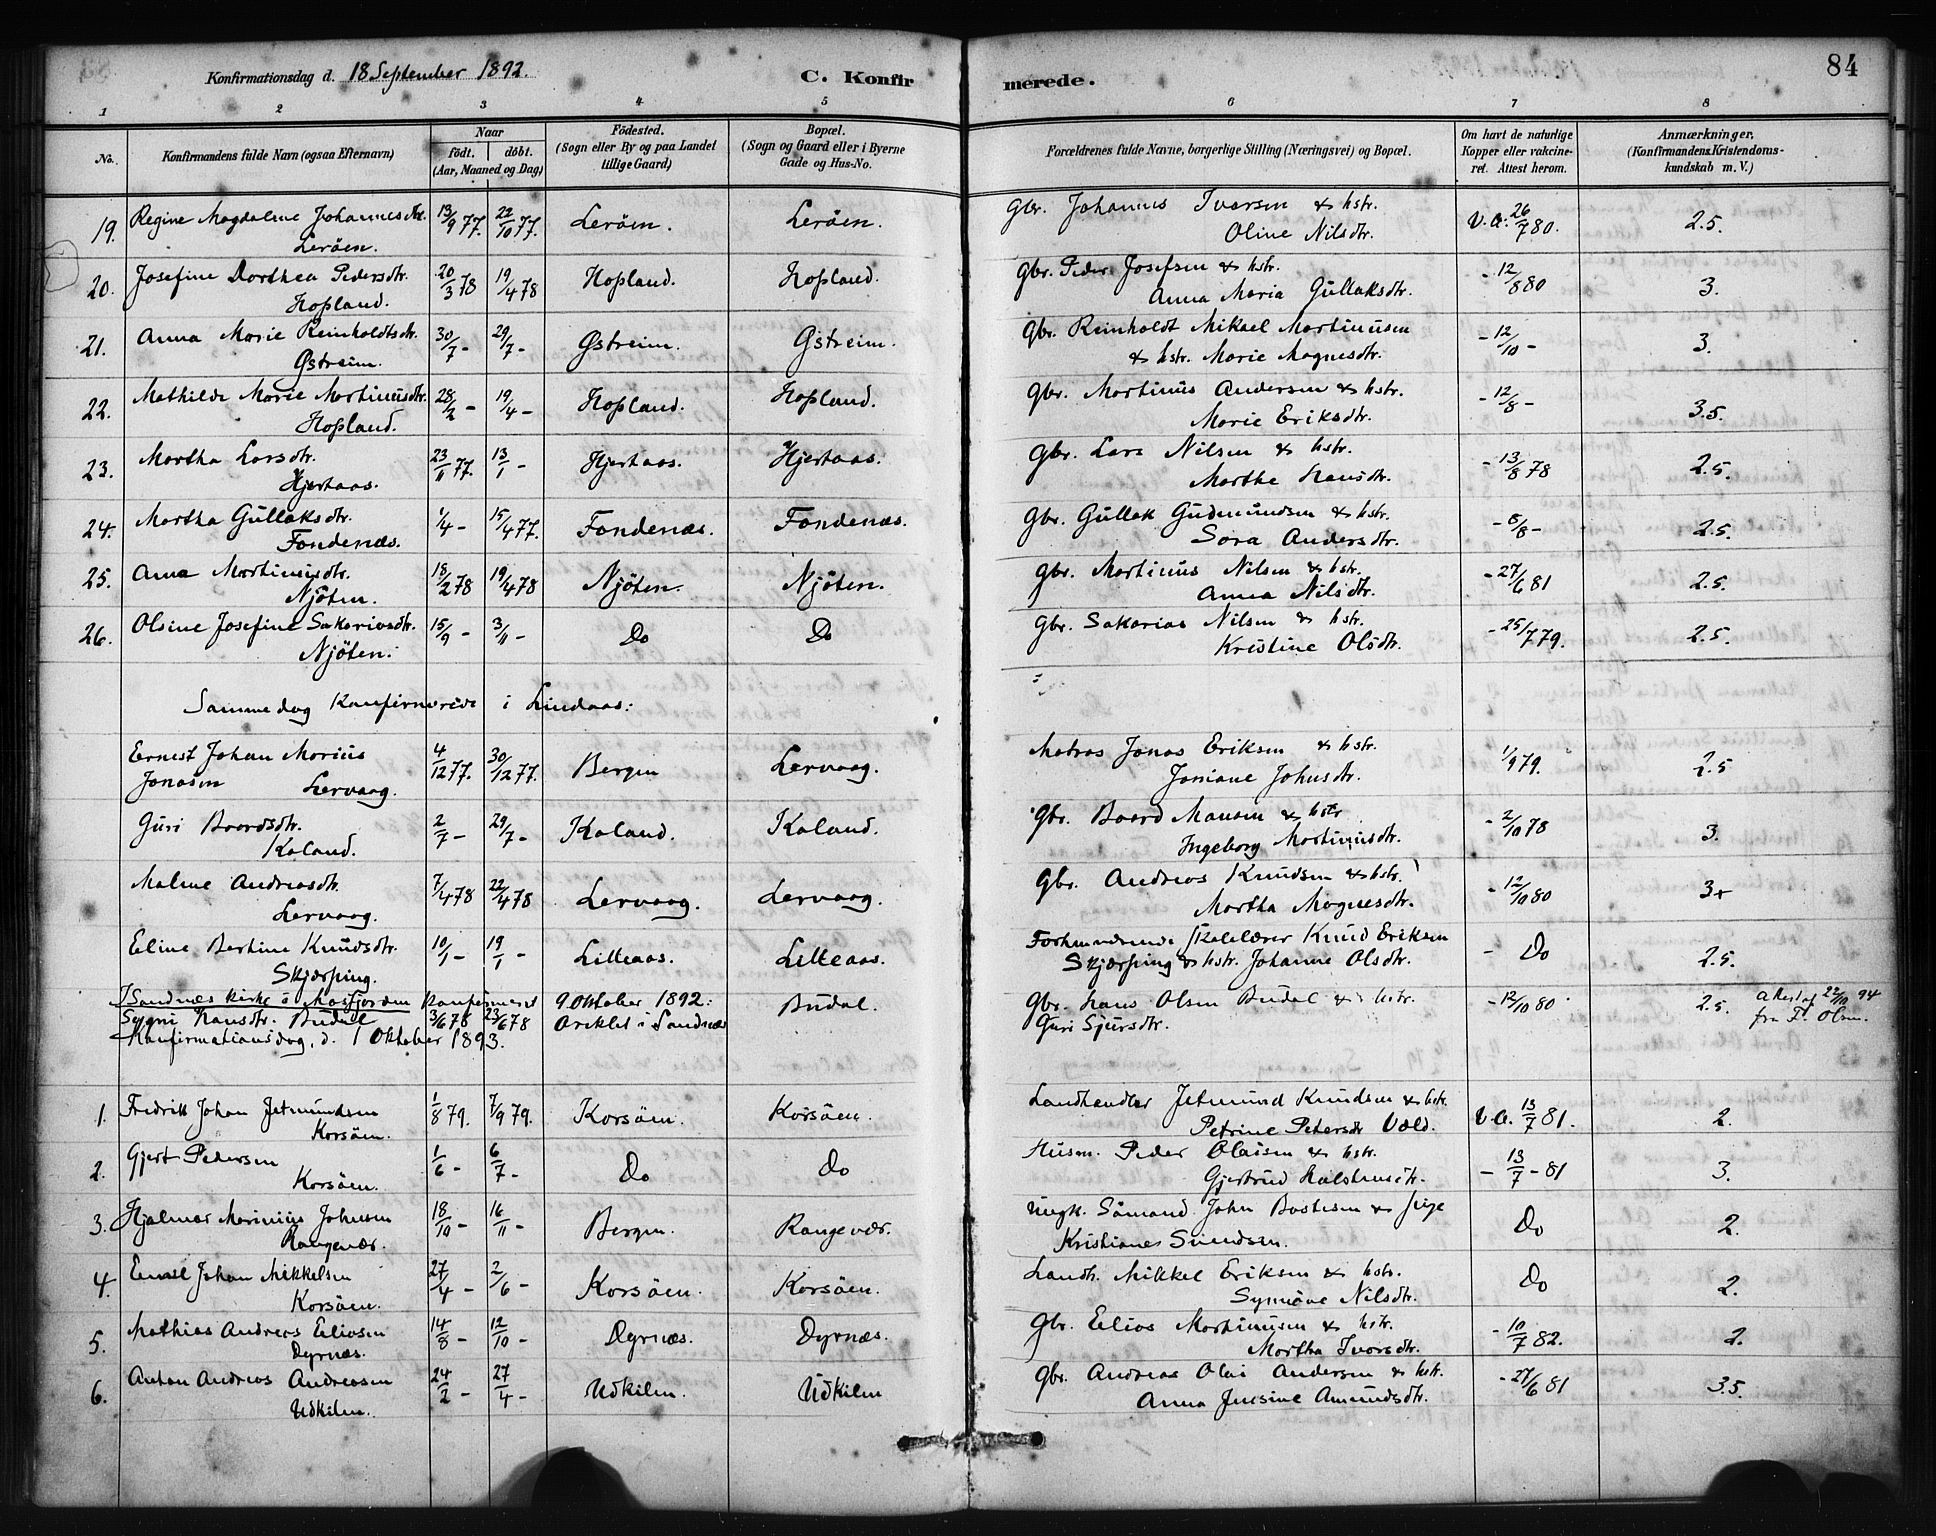 Konfirmationsdag d. 18 September 1892. C. Konfirmerede. 84
1 2 3 4 5 6 7 8
No. Konfirmandens fulde Navn (ogsaa Efternavn) Naar født. døbt. (Aar, Maaned og Dag) Fødested. (Sogn eller By og paa Landet tillige Gaard) Bopæl. (Sogn og Gaard eller i Byerne Gade og Hus-No. Forældrenes fulde Navne, borgerlige Stilling (Næringsvei) og Bopæl. Om havt de naturlige Kopper eller vakcineret. Attest herom. Anmærkninger. (Konfirmandens Kristendomskundskab m. V.)
19. Regine Magdalene Johannesdtr. 13/9 77. 22/10 77. Lerøen. Lerøen. Gbr. Johannes Iversen & hstr. V.A. 26/7 80. 2.5.
Lerøen. Oline Nilsdtr.
20. Josefine Dorthea Pedersdtr. 20/3 78 19/4 78 Hopland. Hopland. Gbr. Peder Josefsen & hstr. - 12/8 80 3.
Hopland. Anna Maria Gullaksdtr.
21. Anna Marie Reinholdtsdtr. 30/7 - 29/7 - Østreim. Østreim. Gbr. Reinholdt Mikael Martinusen - 12/10 - 3.
Østreim. & hstr. Marie Magnesdtr.
22. Mathilde Marie Martinusdtr. 28/2 - 19/4 - Hopland. Hopland. Gbr. Martinus Andersen & hstr. - 12/8 - 3.5.
Hopland. Marie Eriksdtr.
23. Martha Larsdtr. 23/11 77. 13/1 - Hjertaas. Hjertaas. Gbr. Lars Nilsen & hstr. - 13/8 78 2.5.
Hjertaas. Marthe Hansdtr.
24. Martha Gullaksdtr. 1/4 - 15/4 77. Fondenæs. Fondenæs. Gbr. Gullak Gudmundsen & hstr. - 8/8 - 2.5.
Fondenæs. Sara Andersdtr.
25. Anna Martinusdtr. 18/2 78 19/4 78 Njøten. Njøten. Gbr. Martinus Nilsen & hstr. - 27/6 81 2.5.
Njøten. Anna Nilsdtr.
26. Olsine Josefine Sakariasdtr. 15/9 - 3/11 - Do Do Gbr. Sakarias Nilsen & hstr. - 25/7 79. 2.5.
Njøten. Kristine Olsdtr.
Samme dag Konfirmerede i Lindaas:
Ernest Johan Marius 4/12 77. 30/12 77. Bergen Lervaag. Matros Jonas Eriksen & hstr. 1/9 79. 2.5
Jonasen Lervaag. Josiane Johnsdtr.
Guri Baardsdtr. 2/7 - 29/7 - Kaland. Kaland. Gbr. Baard Mansen & hstr. - 2/10 78 3.
Kaland. Ingeborg Martinusdtr.
Malene Andreasdtr. 7/4 78 22/4 78 Lervaag. Lervaag. Gbr. Andreas Knudsen & hstr. - 12/10 80 3+
Lervaag. Martha Magnesdtr.
Eline Bertine Knudsdtr. 10/1 - 19/1 - Lilleaas. Lilleaas. Forhenværende Skolelærer Knud Eriksen - Do 2.5.
Skjærping. Skjærping & hstr. Johanne Olsdtr.
I Sandnæs kirke i Masfjorden Konfirmeret 9 Oktober 1892:
Sygni Hansdtr. Budal 3/6 78 23/6 78 Areklet i Sandnæs Budal. Gbr. Hans Olsen Budal & hstr. - 12/10 80 2.5. attest af 22/10 94
Guri Sjursdtr. fra F. Olsen.
Konfirmationsdag. d. 1 Oktober 1893.
1. Fredrik Johan Jetmundsen 1/8 79. 7/9 79. Korsøen. Korsøen. Landhandler Jetmund Knudsen & hstr. V.A. 13/7 81. 2.
Korsøen. Petrine Petersdtr Væld.
2. Gjert Pedersen 1/6 - 6/7 - Do Do Husm. Peder Olaisen & hstr. - 13/7 - 81 3.
Korsøen. Gjertrud Halstensdtr.
3. Hjalmar Marinius Johnsen 18/10 - 16/11 - Bergen. Rangevær. Ungk. Sømand John Bastesen & pige Do 2.
Rangevær. Kristianes Svendsen.
4. Emil Johan Mikkelsen 27/4 - 2/6 - Korsøen. Korsøen. Landh. Mikkel Eriksen & hstr. Do 2.
Korsøen. Synnøve Nilsdtr.
5. Mathias Andreas Eliasen 14/8 - 12/10 - Dyrnæs. Dyrnæs. Gbr. Elias Martinusen & hstr. - 10/7 82. 2.
Dyrnæs. Martha Ivarsdtr.
6. Anton Andreas Andreasen 24/2 - 27/4 - Udkilen. Udkilen Gbr. Andreas Olai Andersen & hstr. - 27/6 81 3.5.
Udkilen. Anna Jensine Amundsdtr.